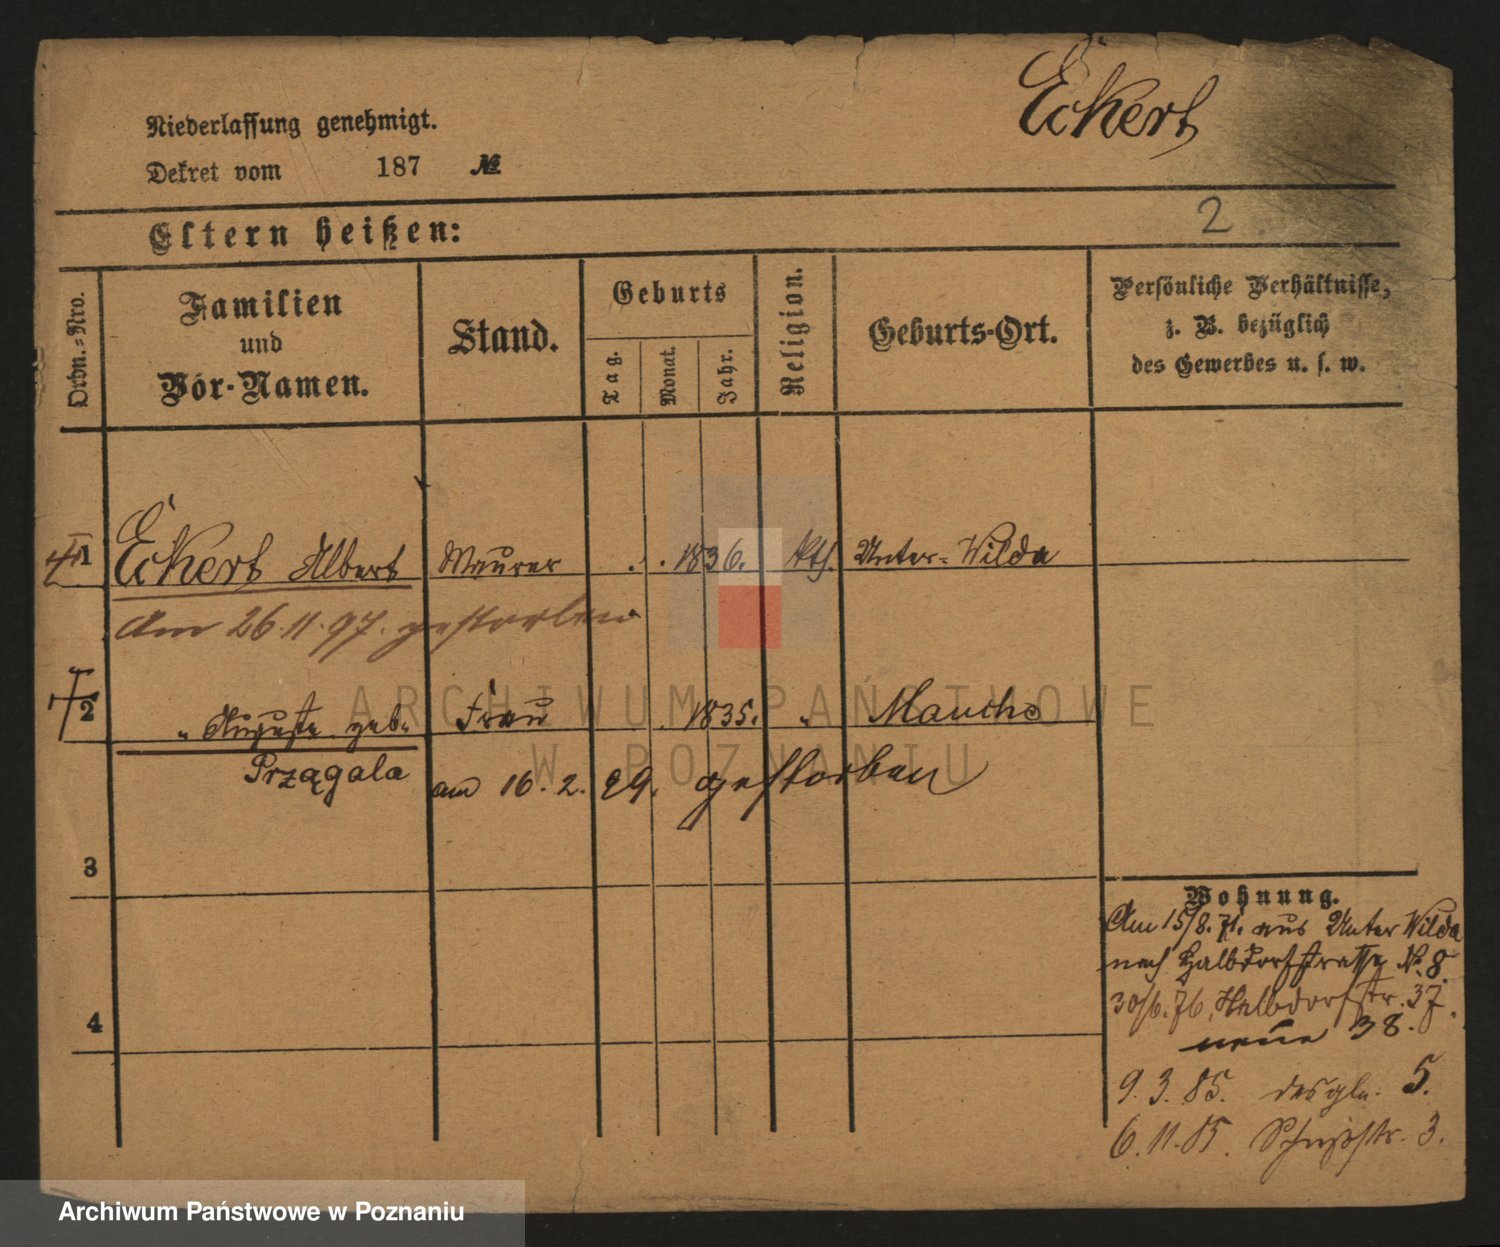 Eckert
Niederlassung genehmigt.
Dekret vom 187 №
2
Eltern heißen:
Ordn.-Nro.
Familien
und
Vor-Namen.
Stand.
Geburts
Tag.
Monat.
Jahr.
Religion.
Geburts-Ort.
Persönliche Verhältnisse,
z. B. bezüglich
des Gewerbes u. s. w.
1 Eckert Albert Maurer . . 1836. kth. Unter-Wilda
Am 26.11.97. gestorben
2 " Auguste geb. Frau . 1835. " Mauche
Prządala
am 16. 2. 99. gestorben
3
4
Wohnung.
Am 15/8. 71. aus Unter Wilda
nach Halbdorfstrasse № 8.
30/6. 76, Halbdorfstr. 37.
neue 38.
9. 3. 85. desgln. 5.
6. 11. 85. 3.
ARCHIWUM PAŃSTWOWE
W POZNANIU
Archiwum Państwowe w Poznaniu